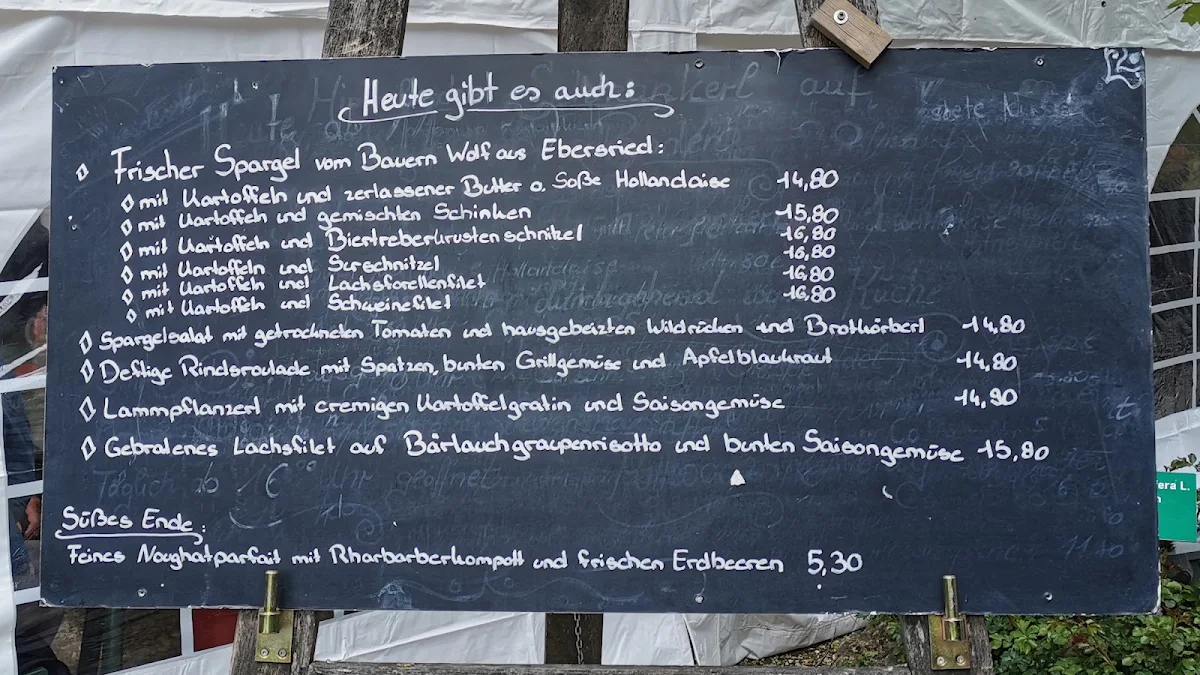 Heute gibt es auch:
Frischer Spargel vom Bauern Wolf aus Ebersried:
mit Kartoffeln und zerlassener Butter o. Soße Hollandaise 14,80
mit Kartoffeln und gemischten Schinken 15,80
mit Kartoffeln und Biertreberkrustenschnitzel 16,80
mit Kartoffeln und Surschnitzel 16,80
mit Kartoffeln und Lachsforellenfilet 16,80
mit Kartoffeln und Schweinefilet 16,80
Spargelsalat mit getrockneten Tomaten und hausgebeizten Wildrücken und Brotkörberl 14,80
Deftige Rindsroulade mit Spatzen, bunten Grillgemüse und Apfelblaukraut 14,80
Lammpflanzerl mit cremigen Kartoffelgratin und Saisongemüse 14,90
Gebratenes Lachsfilet auf Bärlauchgraupenrisotto und bunten Saisongemüse 15,80
Süßes Ende:
Feines Noughatparfait mit Rharbarberkompott und frischen Erdbeeren 5,30
fera L.